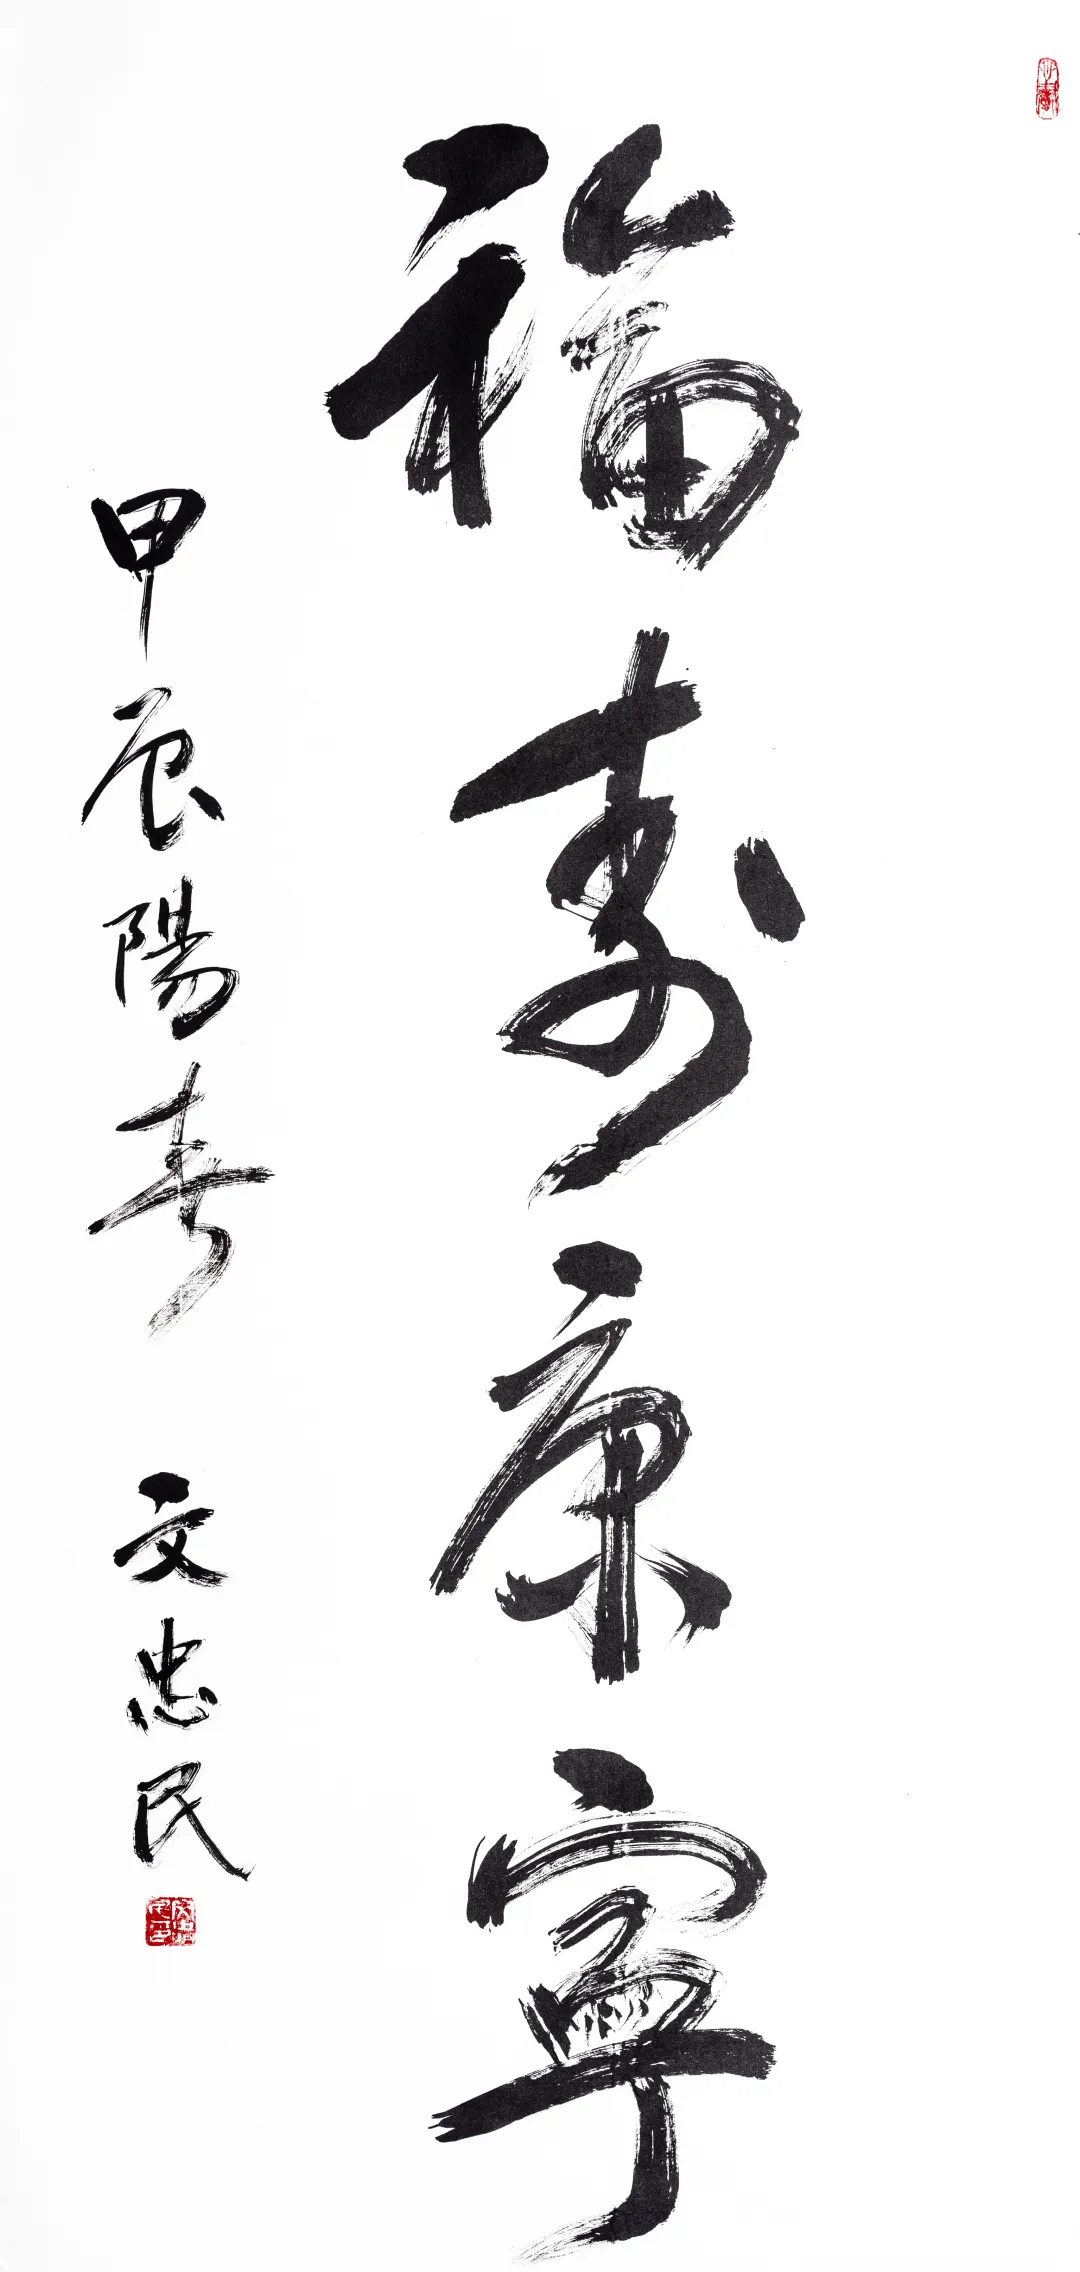 福寿康寧
甲辰陽春 文忠民